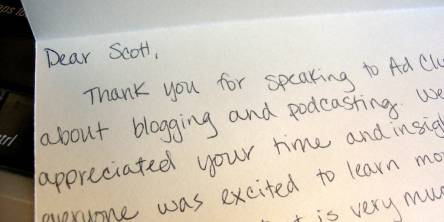 Dear Scott,
Thank you for speaking to Ad Clu
about blogging and podcasting. We
appreciated your time and insig
everyone was excited to learn mo
is very muc